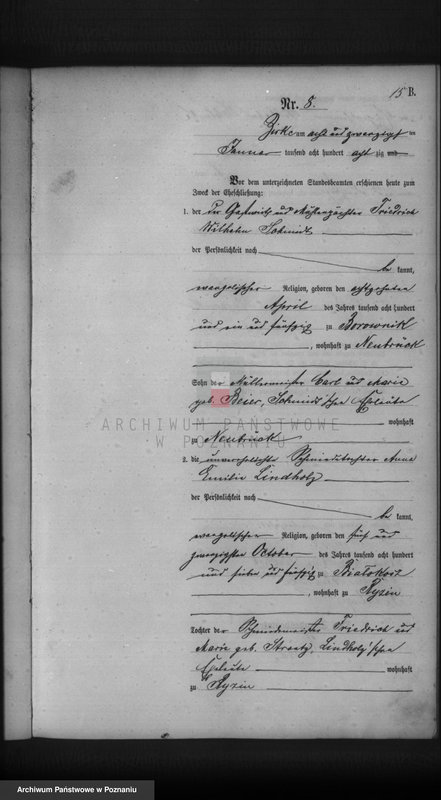 15 B.
Nr. 8.
Zirke am acht und zwanzigsten
Januar tausend acht hundert acht zig und
Vor dem unterzeichneten Standesbeamten erschienen heute zum
Zweck der Eheschließung:
1. der Gastwirth und Mühlenpächter Friedrich
Wilhelm Schmidt
der Persönlichkeit nach
be kannt,
evangelischer Religion, geboren den achtzehnten
April des Jahres tausend acht hundert
und ein und fünfzig zu Borownik
, wohnhaft zu Neubrück
Sohn der Müllermeister Carl und Marie
geb. Beier, Schmidt'schen Eheleute
wohnhaft
zu Neubrück
ARCHIWUM PAŃSTWOWE
W POZNANIU
2. die unverehelichte Schmiedetochter Anna
Emilie Lindholz
der Persönlichkeit nach
be kannt,
evangelischer Religion, geboren den fünf und
zwanzigsten October des Jahres tausend acht hundert
und sieben und fünfzig zu Bialokosz
, wohnhaft zu Ryzin
Tochter der Schmiedemeister Friedrich und
Marie geb. Lindholz'schen
Eheleute wohnhaft
zu Ryzin
Archiwum Państwowe w Poznaniu